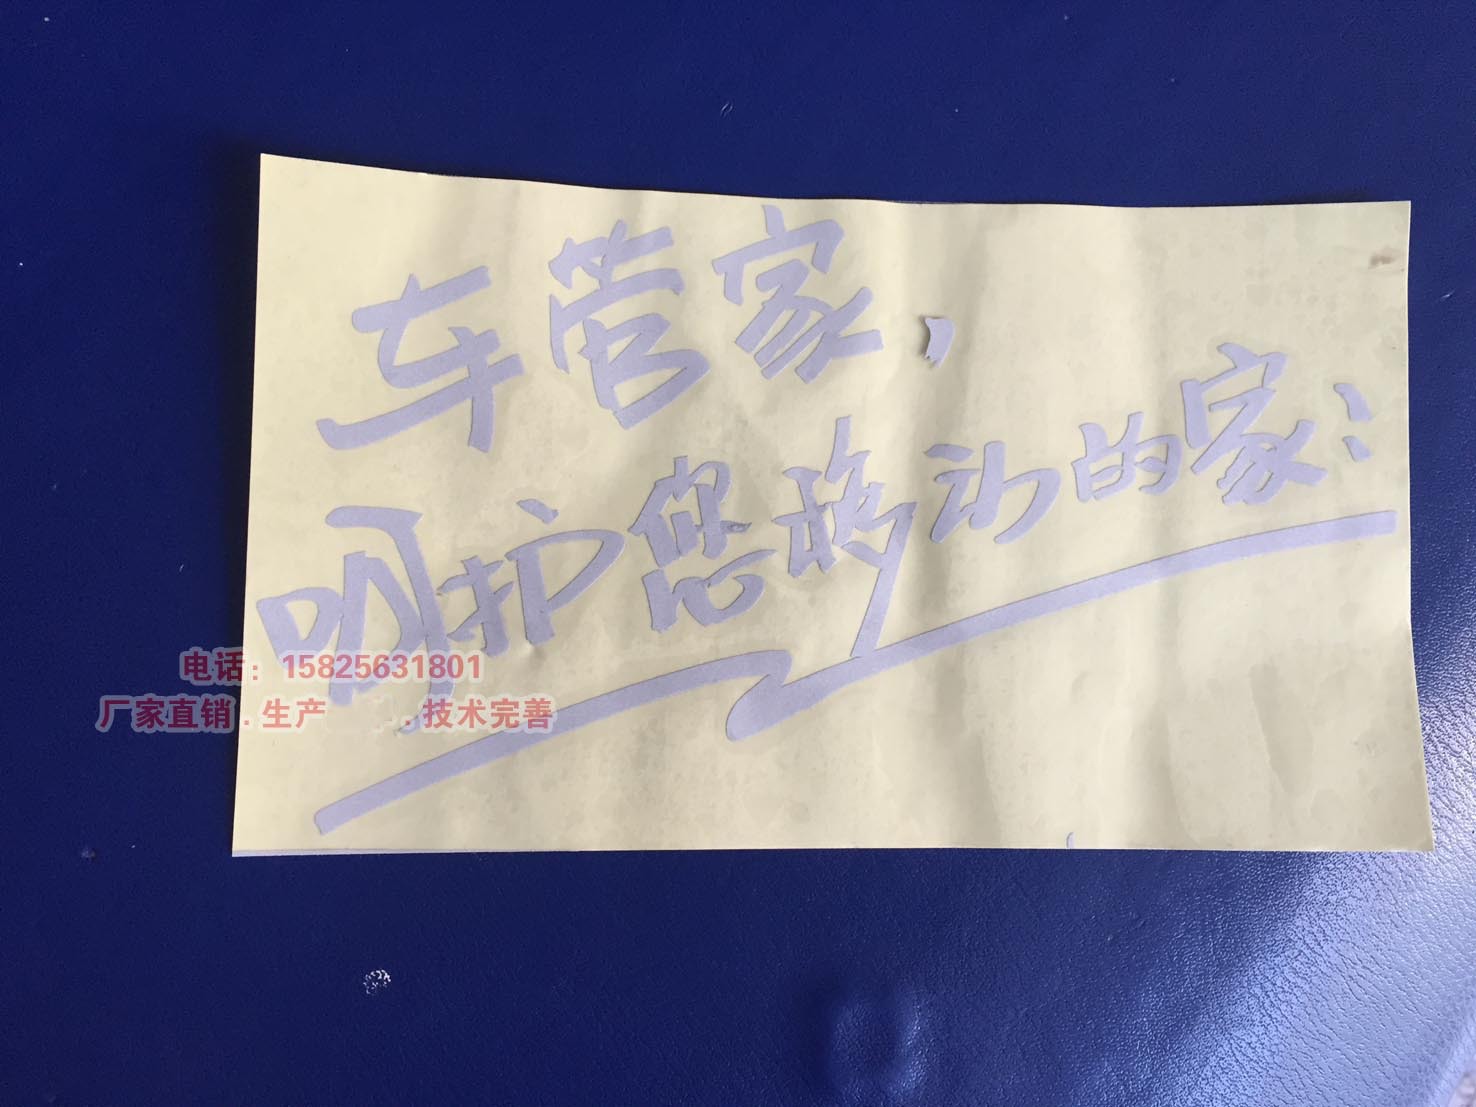 车管家，
呵护您移动的家：
电话：15825631801
厂家直销．生产　　．技术完善